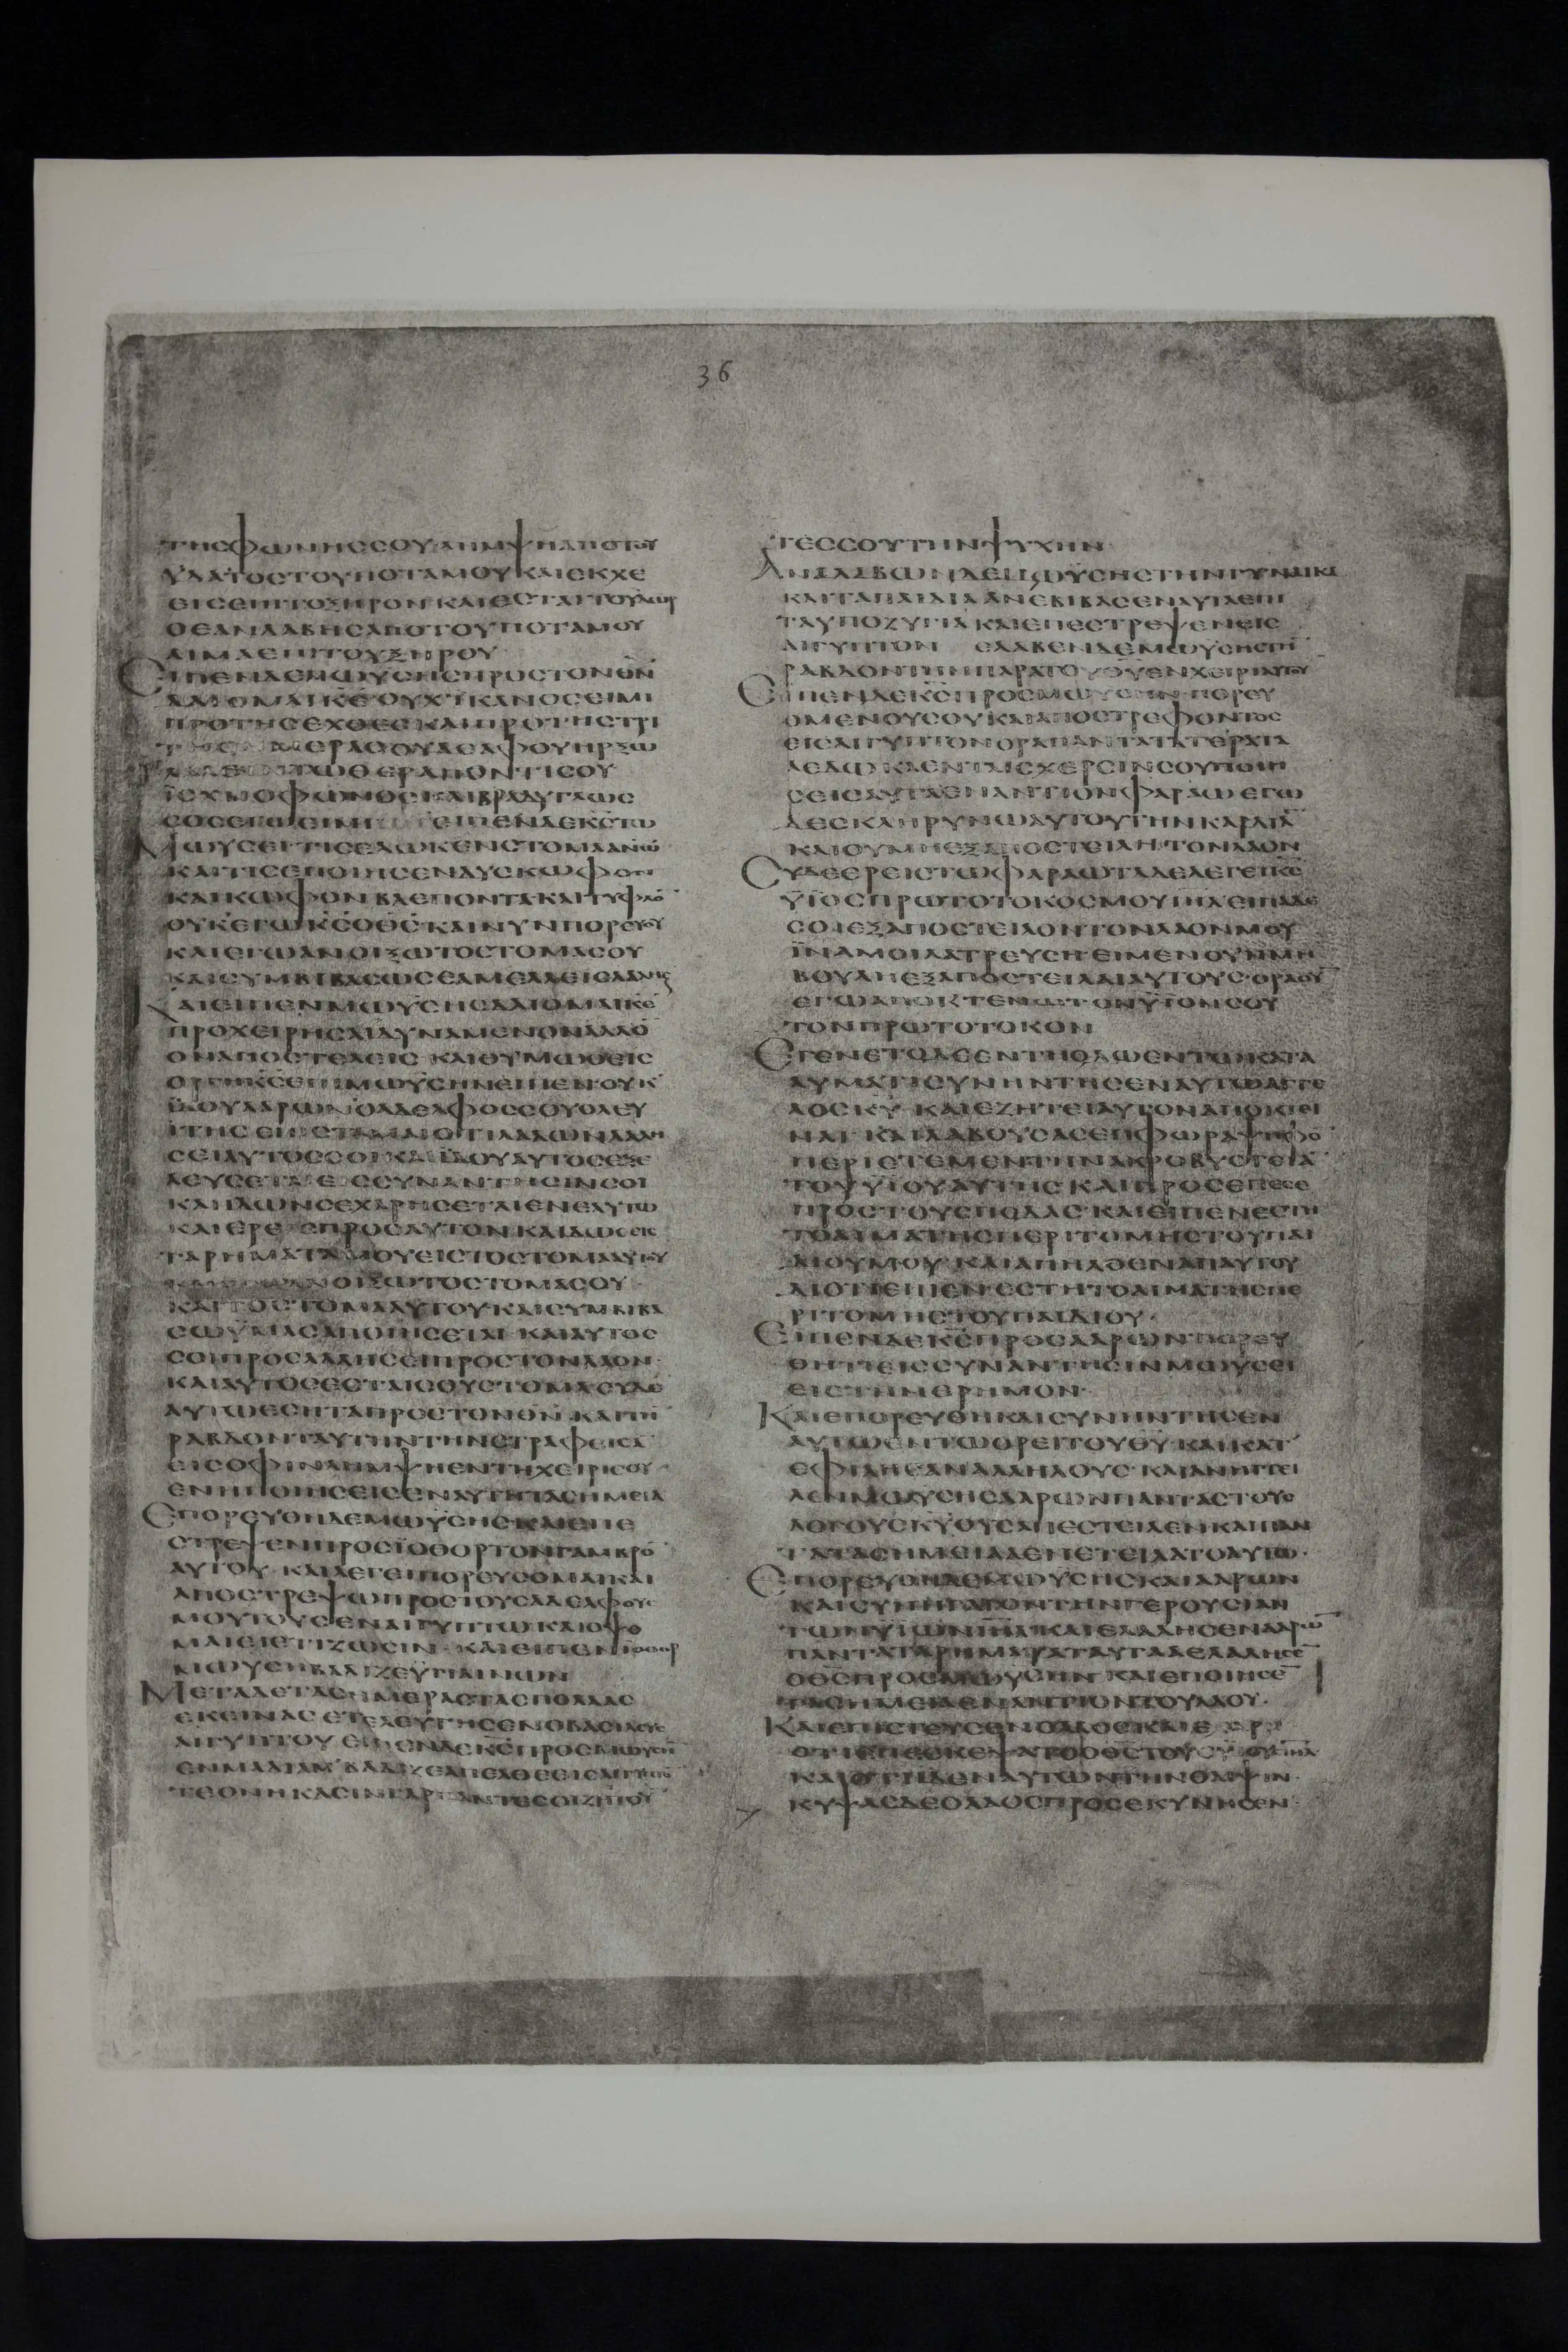 36
ΤΗΣΦΩΝΗΣΣΟΥΛΗΜΨΗΑΠΟΤΟΥ
ΥΔΑΤΟΣΤΟΥΠΟΤΑΜΟΥΚΑΙΕΚΧΕ
ΕΙΣΕΠΙΤΟΞΗΡΟΝΚΑΙΕΣΤΑΙΤΟΥΔΩΡ
ΟΕΑΝΛΑΒΗΣΑΠΟΤΟΥΠΟΤΑΜΟΥ
ΑΙΜΑΕΠΙΤΟΥΞΗΡΟΥ
ΕΙΠΕΝΔΕΜΩΥΣΗΣΠΡΟΣΤΟΝΘΝ
ΔΕΟΜΑΙΚΕΟΥΧΙΚΑΝΟΣΕΙΜΙ
ΠΡΟΤΗΣΕΧΘΕΣΚΑΙΠΡΟΤΗΣΤΡΙ
ΗΜΕΡΑΣΟΥΔΕΑΦΟΥΗΡΞΩ
ΤΩΘΕΡΑΠΟΝΤΙΣΟΥ
ΙΣΧΝΟΦΩΝΟΣΚΑΙΒΡΑΔΥΓΛΩΣ
ΣΟΣΕΓΩΕΙΜΙ ΕΙΠΕΝΔΕΚΣΤΩ
ΜΩΥΣΕΙΤΙΣΕΔΩΚΕΝΣΤΟΜΑΑΝΩ
ΚΑΙΤΙΣΕΠΟΙΗΣΕΝΔΥΣΚΩΦΟΝ
ΚΑΙΚΩΦΟΝΒΛΕΠΟΝΤΑΚΑΙΤΥΦΛΟ
ΟΥΚΕΓΩΚΣΟΘΣΚΑΙΝΥΝΠΟΡΕΥΟΥ
ΚΑΙΕΓΩΑΝΟΙΞΩΤΟΣΤΟΜΑΣΟΥ
ΚΑΙΣΥΜΒΙΒΑΣΩΣΕΑΜΕΛΛΕΙΣΛΑΛΗΣ
ΚΑΙΕΙΠΕΝΜΩΥΣΗΣΔΕΟΜΑΙΚΕ
ΠΡΟΧΕΙΡΗΣΑΙΔΥΝΑΜΕΝΟΝΑΛΛΟ
ΟΝΑΠΟΣΤΕΛΕΙΣΚΑΙΘΥΜΩΘΕΙΣ
ΟΡΓΗΚΣΕΠΙΜΩΥΣΗΝΕΙΠΕΝΟΥΚ
ΙΔΟΥΑΑΡΩΝΟΑΔΕΛΦΟΣΣΟΥΟΛΕΥ
ΙΤΗΣΕΠΙΣΤΑΜΑΙΟΤΙΛΑΛΩΝΛΑΛΗ
ΣΕΙΑΥΤΟΣΣΟΙΚΑΙΙΔΟΥΑΥΤΟΣΕΞΕ
ΛΕΥΣΕΤΑΙΕΙΣΣΥΝΑΝΤΗΣΙΝΣΟΙ
ΚΑΙΙΔΩΝΣΕΧΑΡΗΣΕΤΑΙΕΝΕΑΥΤΩ
ΚΑΙΕΡΕΙΣΠΡΟΣΑΥΤΟΝΚΑΙΔΩΣΕΙΣ
ΤΑΡΗΜΑΤΑΜΟΥΕΙΣΤΟΣΤΟΜΑΑΥΤΟΥ
ΑΝΟΙΞΩΤΟΣΤΟΜΑΣΟΥ
ΚΑΙΤΟΣΤΟΜΑΑΥΤΟΥΚΑΙΣΥΜΒΙΒΑ
ΣΩΥΜΑΣΑΠΟΙΗΣΕΤΑΙΚΑΙΑΥΤΟΣ
ΣΟΙΠΡΟΣΛΑΛΗΣΕΙΠΡΟΣΤΟΝΛΑΟΝ
ΚΑΙΑΥΤΟΣΕΣΤΑΙΣΟΥΣΤΟΜΑΣΥΔΕ
ΑΥΤΩΕΣΗΤΑΠΡΟΣΤΟΝΘΝΚΑΙΤΗ
ΡΑΒΔΟΝΤΑΥΤΗΝΤΗΝΣΤΡΑΦΕΙΣΑ
ΕΙΣΟΦΙΝΛΗΜΨΗΕΝΤΗΧΕΙΡΙΣΟΥ
ΕΝΗΠΟΙΗΣΕΙΣΕΝΑΥΤΗΤΑΣΗΜΕΙΑ
ΕΠΟΡΕΥΘΗΔΕΜΩΥΣΗΣΚΑΙΕΠΕ
ΣΤΡΕΨΕΝΠΡΟΣΙΟΘΟΡΤΟΝΓΑΜΒΡΟ
ΑΥΤΟΥΚΑΙΛΕΓΕΙΠΟΡΕΥΣΟΜΑΙΚΑΙ
ΑΠΟΣΤΡΕΨΩΠΡΟΣΤΟΥΣΑΔΕΛΦΟΥΣ
ΜΟΥΤΟΥΣΕΝΑΙΓΥΠΤΩΚΑΙΟΨΟ
ΜΑΙΕΙΕΤΙΖΩΣΙΝΚΑΙΕΙΠΕΝΙΟΘΟΡ
ΜΩΥΣΗΒΑΔΙΖΕΥΓΙΑΙΝΩΝ
ΜΕΤΑΔΕΤΑΣΗΜΕΡΑΣΤΑΣΠΟΛΛΑΣ
ΕΚΕΙΝΑΣΕΤΕΛΕΥΤΗΣΕΝΟΒΑΣΙΛΕΥΣ
ΑΙΓΥΠΤΟΥΕΙΠΕΝΔΕΚΣΠΡΟΣΜΩΥΣΗ
ΕΝΜΑΔΙΑΜΒΑΔΙΖΕΑΠΕΛΘΕΕΙΣΑΙΓΥΠΤΟ
ΤΕΘΝΗΚΑΣΙΝΓΑΡΠΑΝΤΕΣΟΙΖΗΤΟΥ
ΤΕΣΣΟΥΤΗΝΨΥΧΗΝ
ΑΝΑΛΑΒΩΝΔΕΜΩΥΣΗΣΤΗΝΓΥΝΑΙΚΑ
ΚΑΙΤΑΠΑΙΔΙΑΑΝΕΒΙΒΑΣΕΝΑΥΤΑΕΠΙ
ΤΑΥΠΟΖΥΓΙΑΚΑΙΕΠΕΣΤΡΕΨΕΝΕΙΣ
ΑΙΓΥΠΤΟΝ ΕΛΑΒΕΝΔΕΜΩΥΣΗΣΤΗ
ΡΑΒΔΟΝΤΗΝΠΑΡΑΤΟΥΘΥΕΝΧΕΙΡΙΑΥΤΟΥ
ΕΙΠΕΝΔΕΚΣΠΡΟΣΜΩΥΣΗΝΠΟΡΕΥ
ΟΜΕΝΟΥΣΟΥΚΑΙΑΠΟΣΤΡΕΦΟΝΤΟΣ
ΕΙΣΑΙΓΥΠΤΟΝΟΡΑΠΑΝΤΑΤΑΤΕΡΑΤΑ
ΑΔΕΔΩΚΑΕΝΤΑΙΣΧΕΡΣΙΝΣΟΥΠΟΙΗ
ΣΕΙΣΑΥΤΑΕΝΑΝΤΙΟΝΦΑΡΑΩΕΓΩ
ΔΕΣΚΛΗΡΥΝΩΑΥΤΟΥΤΗΝΚΑΡΔΙΑ
ΚΑΙΟΥΜΗΕΞΑΠΟΣΤΕΙΛΗΤΟΝΛΑΟΝ
ΣΥΔΕΕΡΕΙΣΤΩΦΑΡΑΩΤΑΔΕΛΕΓΕΙΚΣ
ΥΙΟΣΠΡΩΤΟΤΟΚΟΣΜΟΥΙΗΛΕΙΠΑΔΕ
ΣΟΙΕΞΑΠΟΣΤΕΙΛΟΝΤΟΝΛΑΟΝΜΟΥ
ΙΝΑΜΟΙΛΑΤΡΕΥΣΗΕΙΜΕΝΟΥΝΜΗ
ΒΟΥΛΗΕΞΑΠΟΣΤΕΙΛΑΙΑΥΤΟΥΣΟΡΑΟΥ
ΕΓΩΑΠΟΚΤΕΝΩΤΟΝΥΙΟΝΣΟΥ
ΤΟΝΠΡΩΤΟΤΟΚΟΝ
ΕΓΕΝΕΤΟΔΕΕΝΤΗΟΔΩΕΝΤΩΚΑΤΑ
ΛΥΜΑΤΙΣΥΝΗΝΤΗΣΕΝΑΥΤΩΑΓΓΕ
ΛΟΣΚΥΚΑΙΕΖΗΤΕΙΑΥΤΟΝΑΠΟΚΤΕΙ
ΝΑΙΚΑΙΛΑΒΟΥΣΑΣΕΠΦΩΡΑΨΗΦΟ
ΠΕΡΙΕΤΕΜΕΝΤΗΝΑΚΡΟΒΥΣΤΕΙΑ
ΤΟΥΥΙΟΥΑΥΤΗΣΚΑΙΠΡΟΣΕΠΕΣΕ
ΠΡΟΣΤΟΥΣΠΟΔΑΣΚΑΙΕΙΠΕΝΕΣΤΗ
ΤΟΑΙΜΑΤΗΣΠΕΡΙΤΟΜΗΣΤΟΥΠΑΙ
ΔΙΟΥΜΟΥΚΑΙΑΠΗΛΘΕΝΑΠΑΥΤΟΥ
ΔΙΟΤΙΕΙΠΕΝΕΣΤΗΤΟΑΙΜΑΤΗΣΠΕ
ΡΙΤΟΜΗΣΤΟΥΠΑΙΔΙΟΥ
ΕΙΠΕΝΔΕΚΣΠΡΟΣΑΑΡΩΝΠΟΡΕΥ
ΘΗΤΙΕΙΣΣΥΝΑΝΤΗΣΙΝΜΩΥΣΕΙ
ΕΙΣΤΗΝΕΡΗΜΟΝ
ΚΑΙΕΠΟΡΕΥΘΗΚΑΙΣΥΝΗΝΤΗΣΕΝ
ΑΥΤΩΕΝΤΩΟΡΕΙΤΟΥΘΥΚΑΙΚΑΤ
ΕΦΙΛΗΣΑΝΑΛΛΗΛΟΥΣΚΑΙΑΝΗΓΓΕΙ
ΛΕΝΜΩΥΣΗΣΑΑΡΩΝΠΑΝΤΑΣΤΟΥΣ
ΛΟΓΟΥΣΚΥΟΥΣΑΠΕΣΤΕΙΛΕΝΚΑΙΠΑΝ
ΤΑΤΑΣΗΜΕΙΑΑΕΝΕΤΕΙΛΑΤΟΑΥΤΩ
ΕΠΟΡΕΥΘΗΔΕΜΩΥΣΗΣΚΑΙΑΑΡΩΝ
ΚΑΙΣΥΝΗΓΑΓΟΝΤΗΝΓΕΡΟΥΣΙΑΝ
ΤΩΝΥΙΩΝΙΗΛΚΑΙΕΛΑΛΗΣΕΝΑΑΡΩ
ΠΑΝΤΑΤΑΡΗΜΑΤΑΤΑΥΤΑΑΕΛΑΛΗΣΕ
ΟΘΣΠΡΟΣΜΩΥΣΗΝΚΑΙΕΠΟΙΗΣΕ
ΤΑΣΗΜΕΙΑΕΝΑΝΤΙΟΝΤΟΥΛΑΟΥ
ΚΑΙΕΠΙΣΤΕΥΣΕΝΟΛΑΟΣΚΑΙΕΧΑΡΗ
ΟΤΙΕΠΕΣΚΕΨΑΤΟΟΘΣΤΟΥΣΥΙΟΥΣΙΗΛ
ΚΑΙΟΤΙΙΔΕΝΑΥΤΩΝΤΗΝΘΛΙΨΙΝ
ΚΥΨΑΣΔΕΟΛΑΟΣΠΡΟΣΕΚΥΝΗΣΕΝ